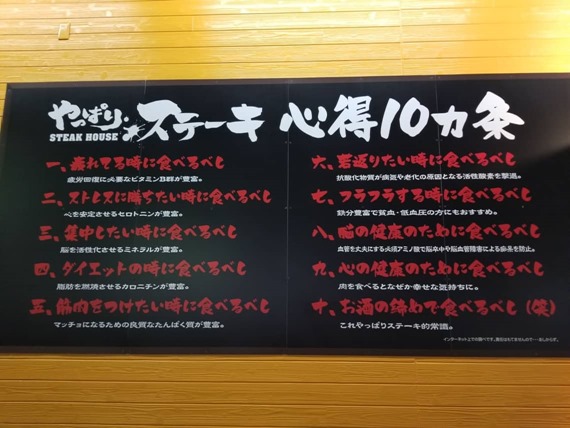 やっぱり!ステーキ 心得10カ条
STEAK HOUSE
一、疲れてる時に食べるべし
疲労回復に必要なビタミンB群が豊富。
二、ストレスに勝ちたい時に食べるべし
心を安定させるセロトニンが豊富。
三、集中したい時に食べるべし
脳を活性化させるミネラルが豊富。
四、ダイエットの時に食べるべし
脂肪を燃焼させるカロニチンが豊富。
五、筋肉をつけたい時に食べるべし
マッチョになるための良質なたんぱく質が豊富。
六、若返りたい時に食べるべし
抗酸化物質が病気や老化の原因となる活性酸素を撃退。
七、フラフラする時に食べるべし
鉄分豊富で貧血・低血圧の方にもおすすめ。
八、脳の健康のために食べるべし
血管を丈夫にする必須アミノ酸で脳卒中や脳血管障害による病気を防止。
九、心の健康のために食べるべし
肉を食べるとなぜか幸せな気持ちに。
十、お酒の締めで食べるべし(笑)
これやっぱりステーキ的常識。